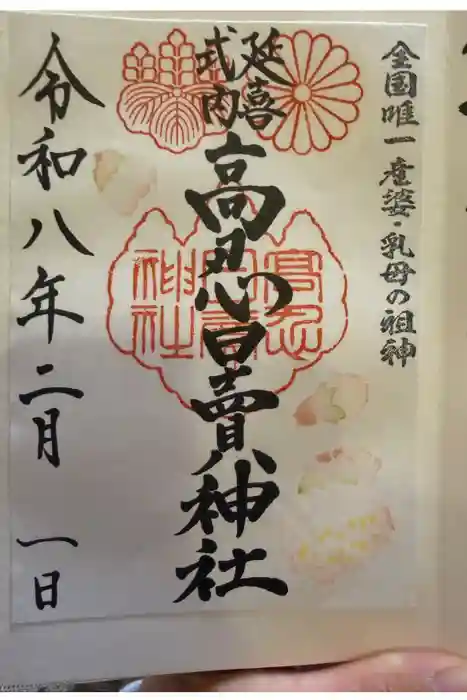 全国唯一産婆・乳母の祖神
延喜
式内
高忍日賣神社
高忍
日賣
神社
令和八年二月 一日